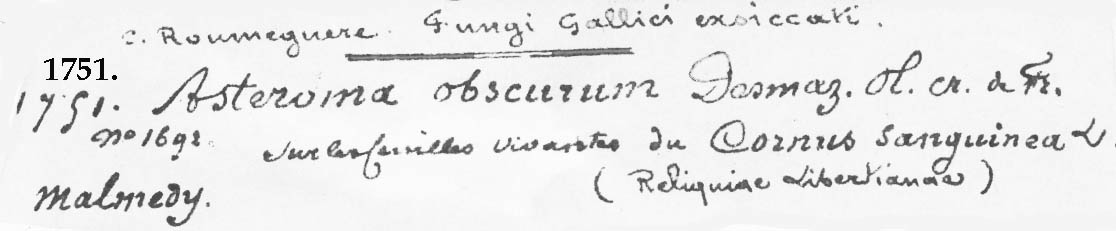 C. Roumeguere. Fungi Gallici exsiccati.
1751.
1751. Asteroma obscurum Desmaz. Pl. cr. de Fr.
no 1692. sur les feuilles vivantes du Cornus sanguinea L.
Malmedy. (Reliquiae Libertianae)